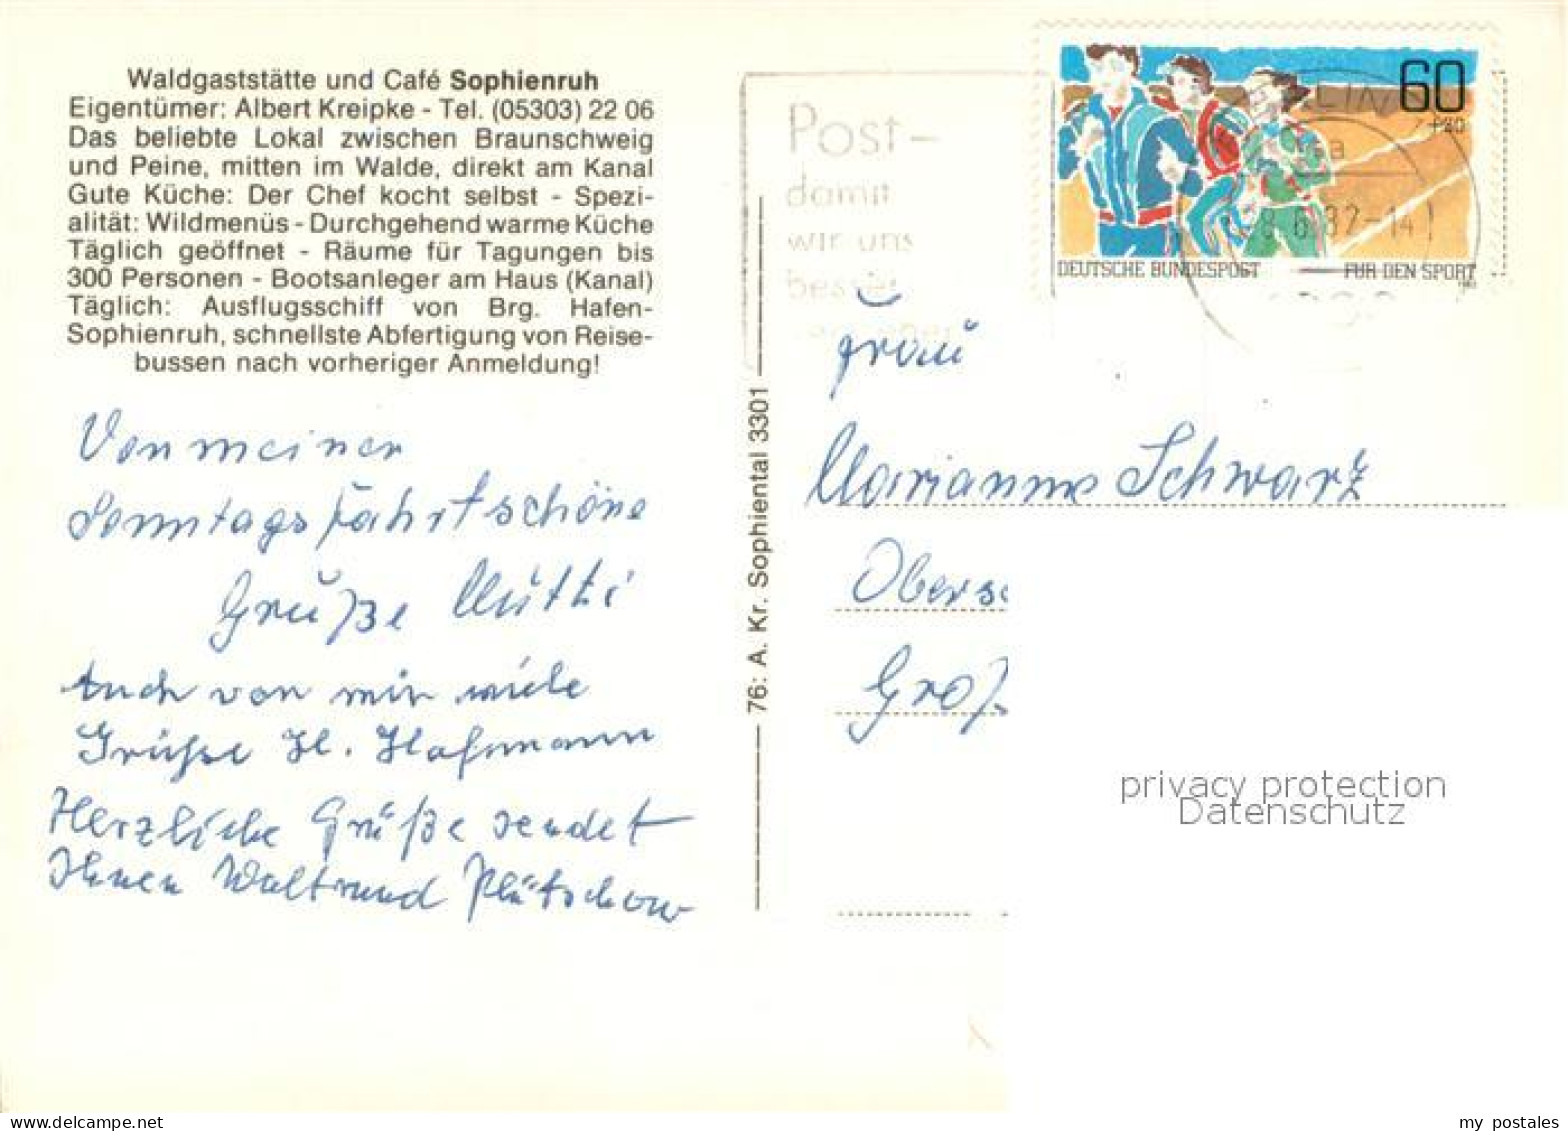 Waldgaststätte und Café Sophienruh
Eigentümer: Albert Kreipke - Tel. (05303) 22 06
Das beliebte Lokal zwischen Braunschweig
und Peine, mitten im Walde, direkt am Kanal
Gute Küche: Der Chef kocht selbst - Spezi-
alität: Wildmenüs - Durchgehend warme Küche
Täglich geöffnet - Räume für Tagungen bis
300 Personen - Bootsanleger am Haus (Kanal)
Täglich: Ausflugsschiff von Brg. Hafen-
Sophienruh, schnellste Abfertigung von Reise-
bussen nach vorheriger Anmeldung!
Von meiner
Sonntagsfahrt schöne
Grüße Mutti
Auch von mir viele
Grüße H. Hofmann
Herzliche Grüße sendet
Ihnen Waltraud Plütschow
76: A. Kr. Sophiental 3301
Post-
damit
wir uns
besser
60
+20
DEUTSCHE BUNDESPOST
FÜR DEN SPORT
28.6.82-14
Frau
Marianne Schwarz
Obersc
Groß
privacy protection
Datenschutz
my postales